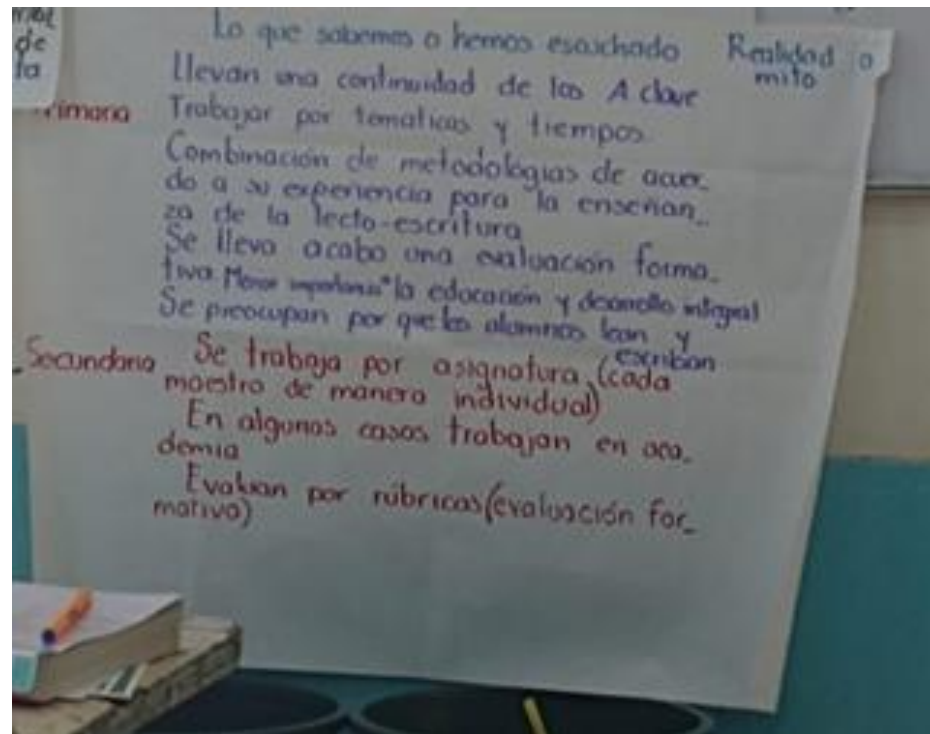 de
ta
Lo que sabemos o hemos escuchado Realidad o
mito
Llevan una continuidad de los A clave
Primaria Trabajar por tematicas y tiempos
Combinación de metodologías de acuer_
do a su experiencia para la enseñan_
za de la lecto-escritura
Se lleva acabo una evaluación forma_
tiva Menor importancia la educación y desarrollo integral
Se preocupan por que los alumnos lean y
escriban
Secundaria Se trabaja por asignatura (cada
maestro de manera individual)
En algunos casos trabajan en aca_
demia
Evaluan por rúbricas (evaluación for_
mativa)